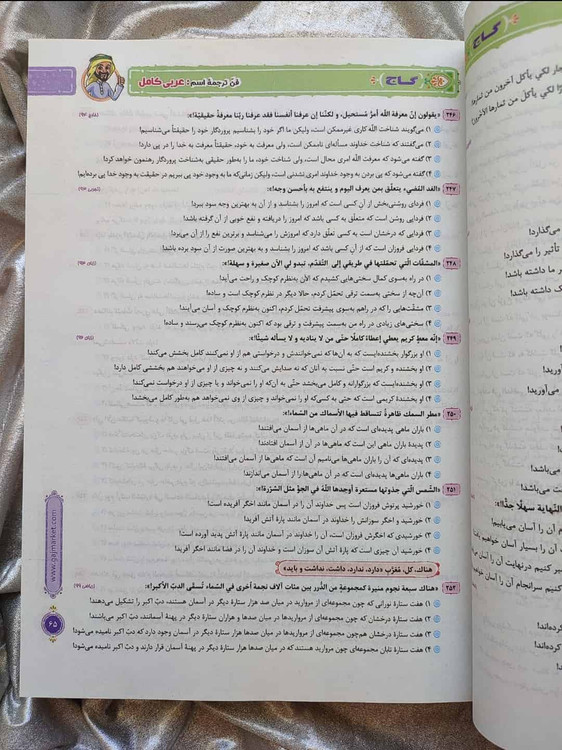 گاج
فنّ ترجمهٔ اسم: عربی کامل
۲۴۶ «یقولون إنّ معرفة اللّه أمرٌ مُستحیل، و لکنّنا إن عرفنا أنفسنا فقد عرفنا ربّنا معرفةً حقیقیّة!»:
۱) می‌گویند شناخت اللّه کاری غیرممکن است، ولیکن ما اگر خود را بشناسیم پروردگار خود را حقیقتاً می‌شناسیم!
۲) می‌گفتند که شناخت خداوند مسأله‌ای ناممکن است، ولی معرفت به خود، حقیقتاً معرفت به خدا را در پی دارد!
۳) گفته می‌شود که معرفت اللّه امری محال است، ولی شناخت خود، ما را به‌طور حقیقی به‌شناخت پروردگار رهنمون خواهد کرد!
۴) گفته می‌شود که پی بردن به وجود خداوند امری نشدنی است، ولیکن زمانی‌که ما به وجود خود پی ببریم در حقیقت به وجود خدا پی برده‌ایم!
۲۴۷ «الغد المُضيء یتعلّق بمن یعرف الیوم و ینتفع به بأحسن وجه!»:
۱) فردای روشنی‌بخش از آنِ کسی است که امروز را بشناسد و از آن به بهترین وجه سود ببرد!
۲) فردایی روشنی است که متعلّق به کسی باشد که امروز را دریافته و نفع خوبی از آن گرفته باشد!
۳) فردایی که درخشان است به کسی تعلّق دارد که امروزش را می‌شناسد و برترین نفع را از آن می‌برد!
۴) فردای فروزان است که از آنِ کسی باشد که امروز را بشناسد و به بهترین صورت از آن سود برده باشد!
۲۴۸ «المشقّات الّتي تحمّلتها في طریقي إلی التّقدّم، تبدو لي الآن صغیرة و سهلة!»:
۱) در راه به‌سوی کمال سختی‌هایی کشیدم که الآن به‌نظرم کوچک و راحت می‌آید!
۲) آن‌چه از سختی به‌سمت ترقّی تحمّل کردم، حالا دیگر در نظرم کوچک است و ساده!
۳) مشقّت‌هایی را که در راهم به‌سوی پیشرفت تحمّل کردم، اکنون به‌نظرم کوچک و آسان می‌آیند!
۴) سختی‌های زیادی در راه من به‌سمت پیشرفت و ترقّی بود که اکنون به‌نظرم کوچک می‌رسند و ساده!
۲۴۹ «إنّه معطٍ کریم یعطي إعطاءً کاملًا حتّی من لا ینادیه و لا یسأله شیئًا!»:
۱) او بزرگوار بخشنده‌ایست که به آن‌ها که نمی‌خوانندش و درخواستی هم از او نمی‌کنند کاملش بخش می‌کند!
۲) او بخشنده و کریم است حتّی نسبت به آنان که نه صدایش می‌کنند و نه چیزی از او می‌خواهند هم بخششی کامل دارد!
۳) او بخشنده‌ایست که بزرگوارانه و کامل می‌بخشد حتّی به آن‌که او را نمی‌خواند و یا چیزی از او درخواست نمی‌کند!
۴) او بخشندهٔ کریمی است که حتی به کسی‌که او را نمی‌خواند و چیزی از وی نمی‌خواهد هم به‌طور کامل می‌بخشد!
۲۵۰ «مطر السمك ظاهرةٌ تتساقط فیها الأسماك من السّماء!»:
۱) باران ماهی پدیده‌ای است که در آن ماهی‌ها از آسمان می‌افتند!
۲) پدیدهٔ باران ماهی این است که ماهی‌ها در آن از آسمان افتادند!
۳) پدیده‌ای که آن را باران ماهی‌ها می‌نامیم آن است که ماهی‌ها از آسمان می‌افتند!
۴) باران ماهی‌ها پدیده‌ای است که در آن ماهی‌ها را از آسمان می‌اندازند!
۲۵۱ «الشّمس الّتي جذوتها مستعرة أوجدها اللّهُ في الجوّ مثل الشررة!»:
۱) خورشید پرتوش فروزان است پس خداوند آن را در آسمان مانند اخگر آفریده است!
۲) خورشید و اخگر سوزانش را خداوند، در آسمان مانند پارهٔ آتش آفرید!
۳) خورشیدی که اخگرش فروزان است، آن را خداوند در آسمان مانند پارهٔ آتش پدید آورده است!
۴) خورشید آن چیزی است که پارهٔ آتش آن سوزان است و خداوند آن را در فضا مانند اخگر آفرید!
هناك، کل، مُعَرَّب «دارد، ندارد، داشت، نداشت و باید»
۲۵۲ «هناك سبعة نجوم منیرة کمجموعةٍ من الدُّرر بین مئات آلاف نجمة أخری في السّماء، تُسمَّی الدبّ الأکبر!»:
۱) هفت ستارهٔ نورانی که چون مجموعه‌ای از مروارید در میان صد هزار ستارهٔ دیگر در آسمان هستند، دبّ اکبر را تشکیل می‌دهند!
۲) هفت ستارهٔ درخشان که چون مجموعه‌ای از مرواریدها در میان صدها و هزاران ستارهٔ دیگر در پهنهٔ آسمانند، دبّ اکبر می‌باشند!
۳) هفت ستارهٔ درخشان هم‌چون مجموعه‌ای از مرواریدها در میان صدها هزار ستارهٔ دیگر در آسمان وجود دارد که دبّ اکبر نامیده می‌شود!
۴) هفت ستارهٔ تابان مجموعه‌ای چون مروارید هستند که در میان صدها هزار ستارهٔ دیگر در پهنهٔ آسمان قرار دارند و دبّ اکبر نامیده می‌شود!
www.gajmarket.com
۶۵
گاج